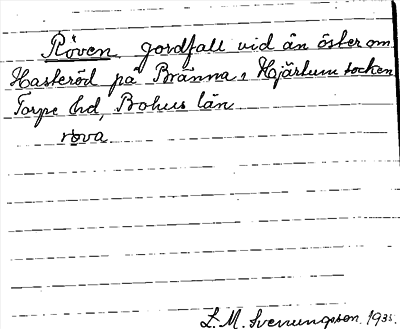 Röven jordfall vid ån öster om
Hasteröd på Bränna, Hjärtum socken
Torpe hd, Bohus län
rova
L. M. Svenungsson. 1935.